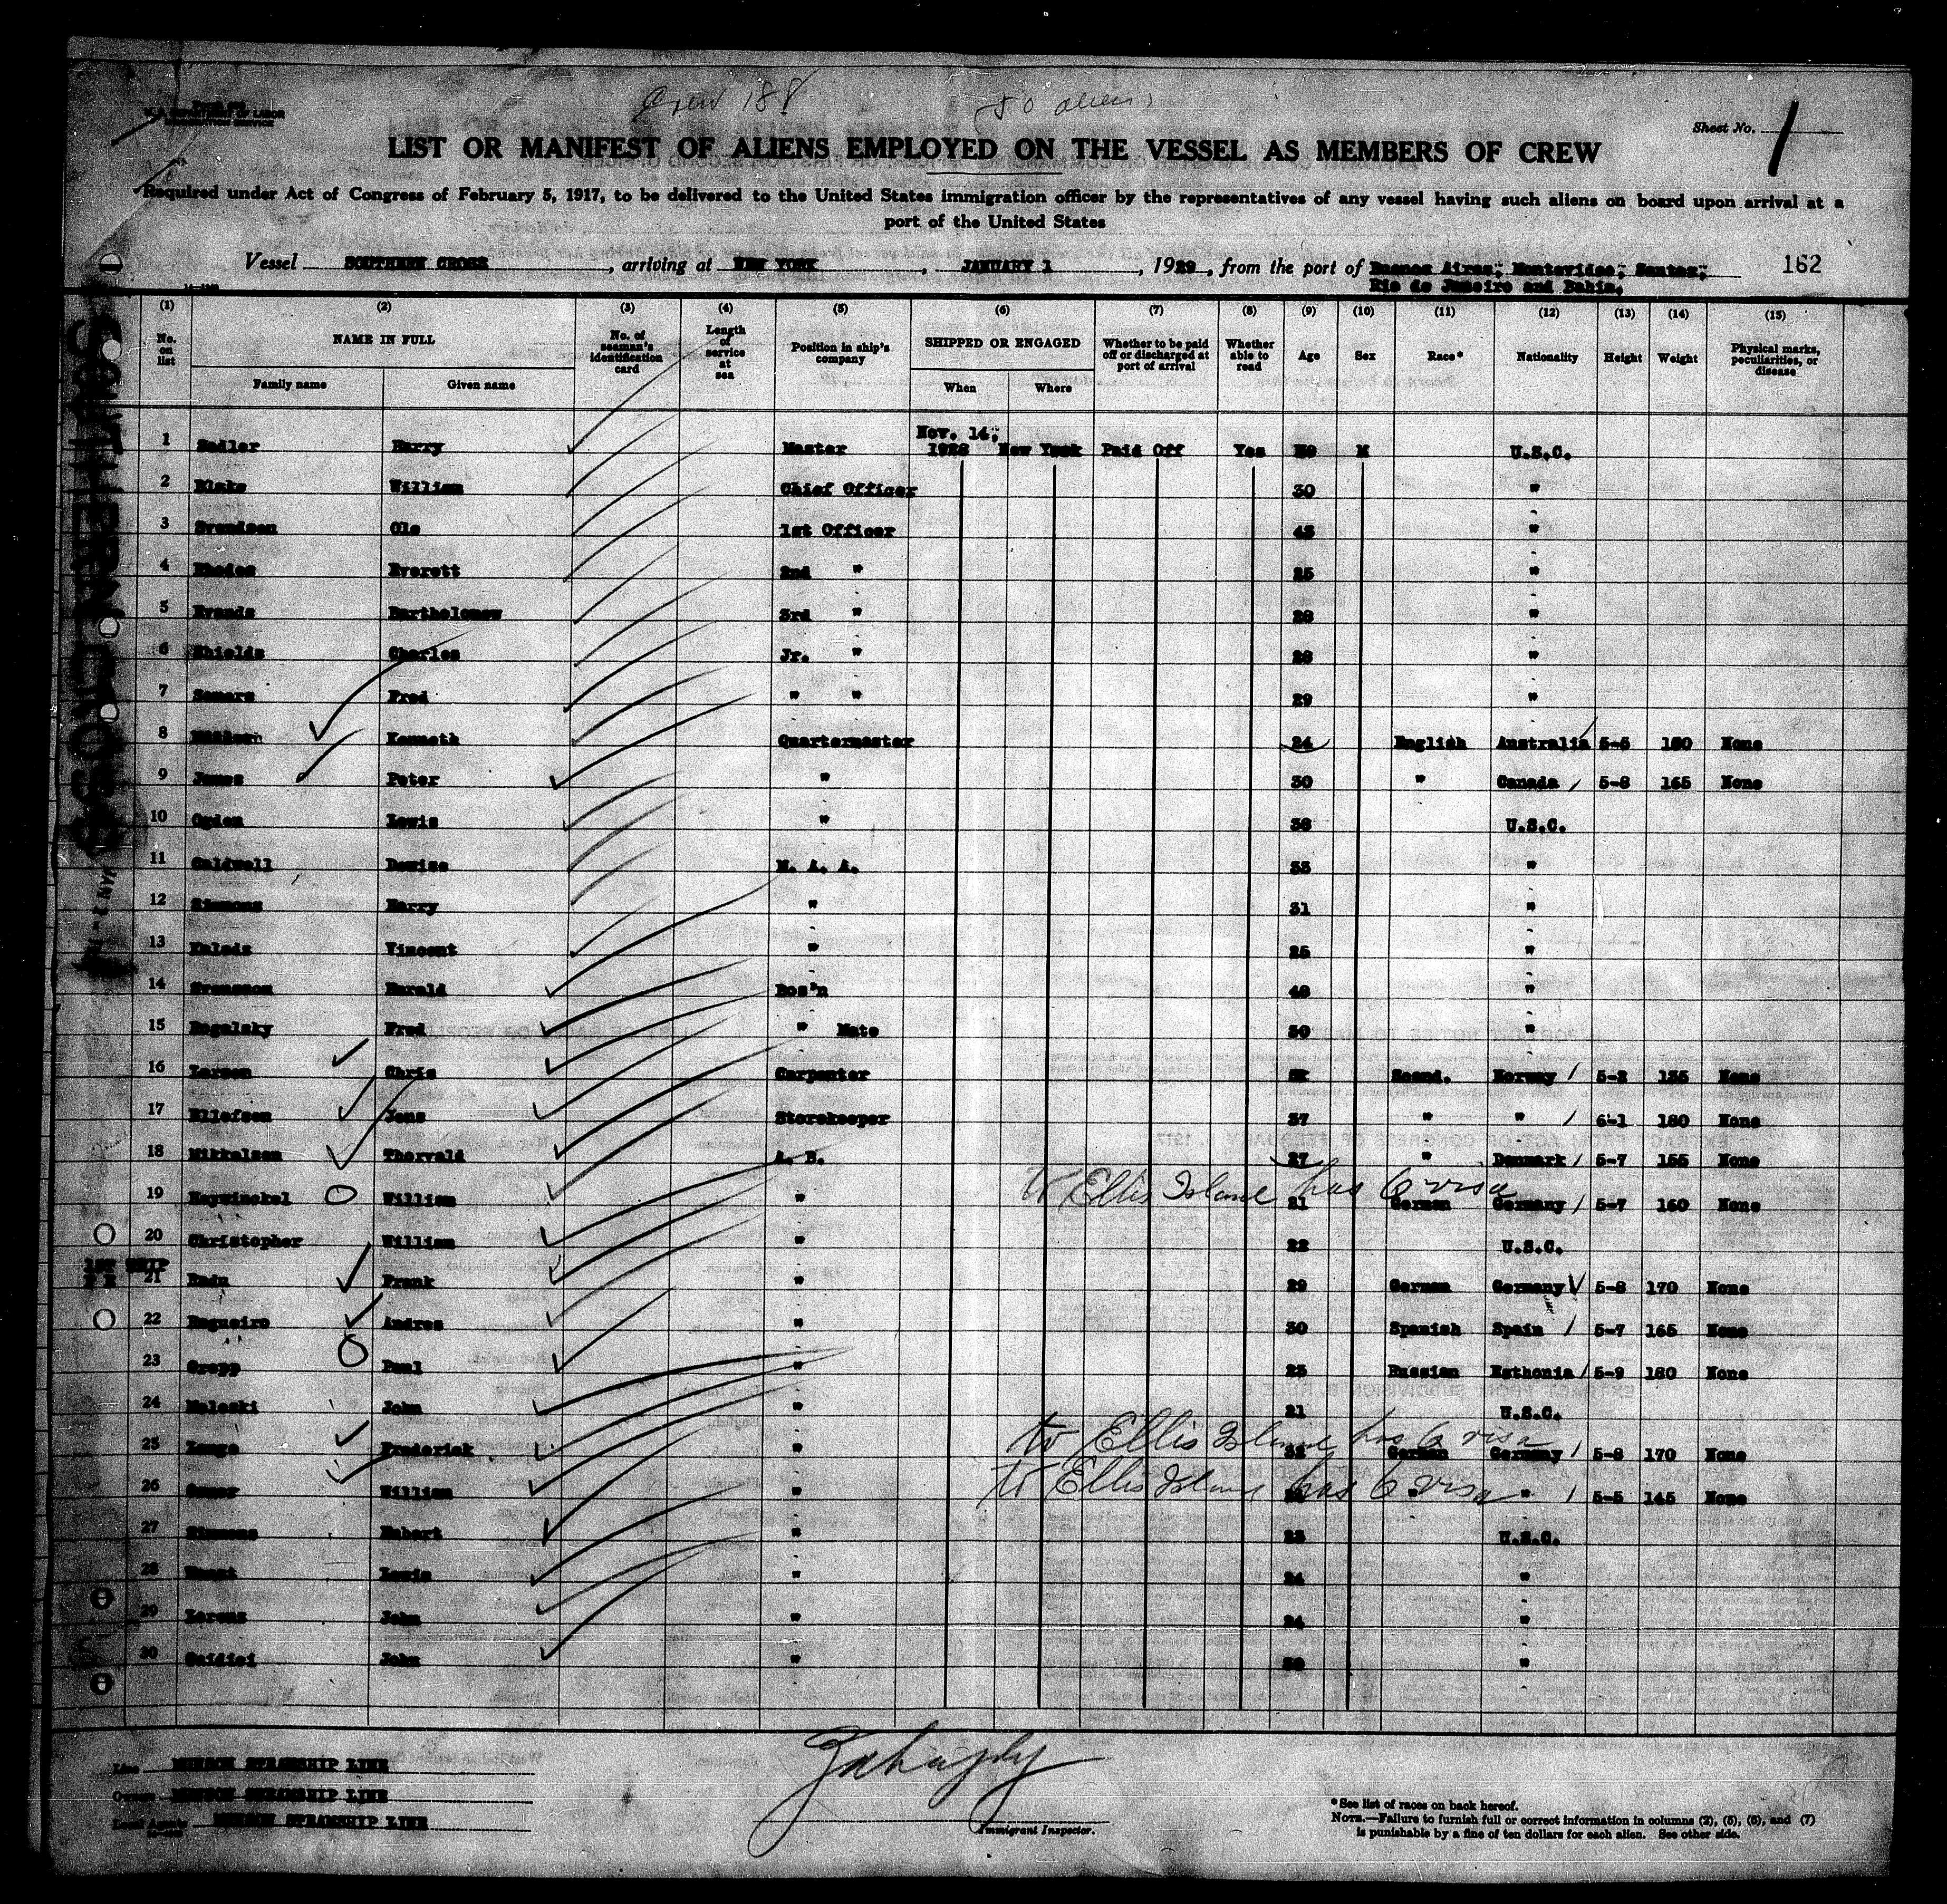 Crew 188
50 aliens
U.S. DEPARTMENT OF LABOR
IMMIGRATION SERVICE
Sheet No. 1
LIST OR MANIFEST OF ALIENS EMPLOYED ON THE VESSEL AS MEMBERS OF CREW
Required under Act of Congress of February 5, 1917, to be delivered to the United States immigration officer by the representatives of any vessel having such aliens on board upon arrival at a
port of the United States
Vessel SOUTHERN CROSS, arriving at NEW YORK, JANUARY 1, 1929, from the port of Buenos Aires; Montevideo; Santos; 162
Rio de Janeiro and Bahia.
(1) (2) (3) (4) (5) (6) (7) (8) (9) (10) (11) (12) (13) (14) (15)
No. on list NAME IN FULL Family name Given name No. of seaman's identification card Length of service at sea Position in ship's company SHIPPED OR ENGAGED When Where Whether to be paid off or discharged at port of arrival Whether able to read Age Sex Race* Nationality Height Weight Physical marks, peculiarities, or disease
1 Sadler Harry Master Nov. 14; 1928 New York Paid Off Yes M U.S.C.
2 Blake William Chief Officer 30 "
3 Svendsen Ole 1st Officer 45 "
4 Rhodes Everett 2nd " 25 "
5 Evands Bartholomew 3rd " 28 "
6 Shields Charles Jr. " 28 "
7 Somers Fred " " 29 "
8 Kenneth Quartermaster 24 English Australia 5-5 150 None
9 Jones Peter " 30 " Canada 5-8 165 None
10 Ogden Lewis " 38 U.S.C.
11 Caldwell Dewise M. A. A. 33 "
12 Simmons Harry " 31 "
13 Vincent " 25 "
14 Svensson Harald Bos'n 48 "
15 Rogalsky Fred " Mate 50 "
16 Larsen Chris Carpenter Scand. Norway 5-8 135 None
17 Ellefsen Jens Storekeeper 37 " " 6-1 180 None
18 Mikkelsen Thorvald A. B. 27 " Denmark 5-7 155 None
to Ellis Island has 6 visa
19 Heywinckel William " 21 German Germany 5-7 160 None
20 Christopher William " 22 U.S.C.
1ST SHIP
21 Frank " 29 German Germany 5-8 170 None
22 Andres " 30 Spanish Spain 5-7 165 None
23 Gropp Paul " 25 Russian Esthonia 5-9 180 None
24 Maleski John " 21 U.S.C.
to Ellis Island has 6 visa
25 Lange Frederick " German Germany 5-8 170 None
to Ellis Island has 6 visa
26 William " " " 5-5 145 None
27 Simmons Robert " 23 U.S.C.
28 Lewis " 24 "
29 Lorenz John " 24 "
30 John " "
Line MUNSON STEAMSHIP LINE
Owners MUNSON STEAMSHIP LINE
Local Agents MUNSON STEAMSHIP LINE
Immigrant Inspector.
*See list of races on back hereof.
NOTE.—Failure to furnish full or correct information in columns (2), (5), (6), and (7)
is punishable by a fine of ten dollars for each alien. See other side.
SOUTHERN CROSS